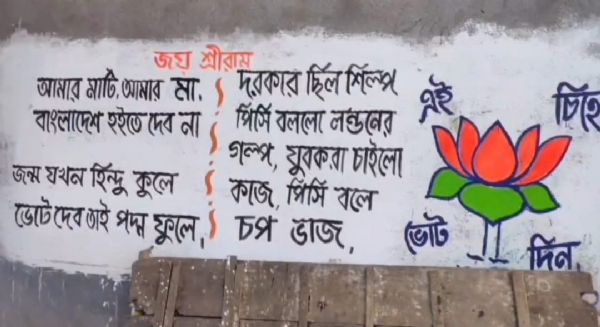 জয় শ্রীরাম
আমার মাটি, আমার মা,
বাংলাদেশ হইতে দেব না
জন্ম যখন হিন্দু কুলে
ভোট দেব তাই পদ্ম ফুলে,
দরকার ছিল শিল্প
পিসি বললো লন্ডনের
গল্প, যুবকরা চাইলো
কাজ, পিসি বলে
চপ ভাজ,
এই চিহ্নে
ভোট দিন